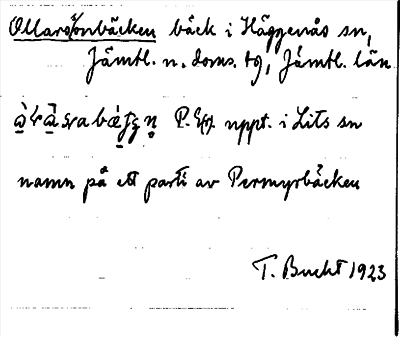 Ollars(s)onbäcken bäck i Häggenås sn,
Jämtl. n. doms. tg, Jämtl. län
P. Exp. uppt. i Lits sn
namn på ett parti av Permyrbäcken
T. Bucht 1923